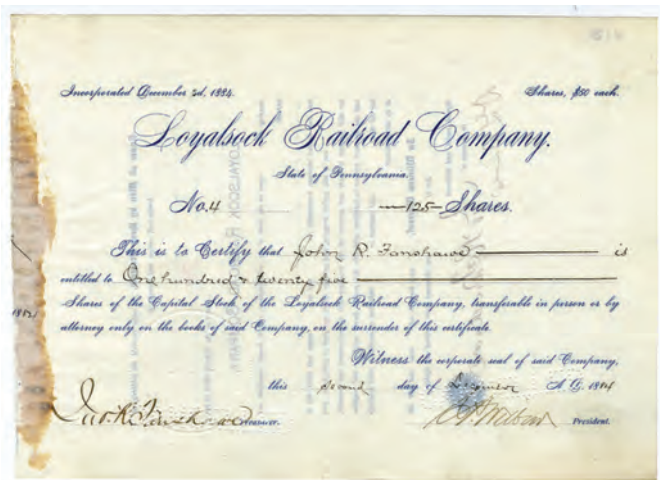 Incorporated December 2d, 1884. Shares, $50 each.
Loyalsock Railroad Company.
State of Pennsylvania.
No. 4 125 Shares.
This is to Certify that John R. Fanshawe is
entitled to One hundred & twenty five
Shares of the Capital Stock of the Loyalsock Railroad Company, transferable in person or by
attorney only on the books of said Company, on the surrender of this certificate.
Witness the corporate seal of said Company,
this second day of December A.D. 1884
Jno. R. Fanshawe Treasurer. President.